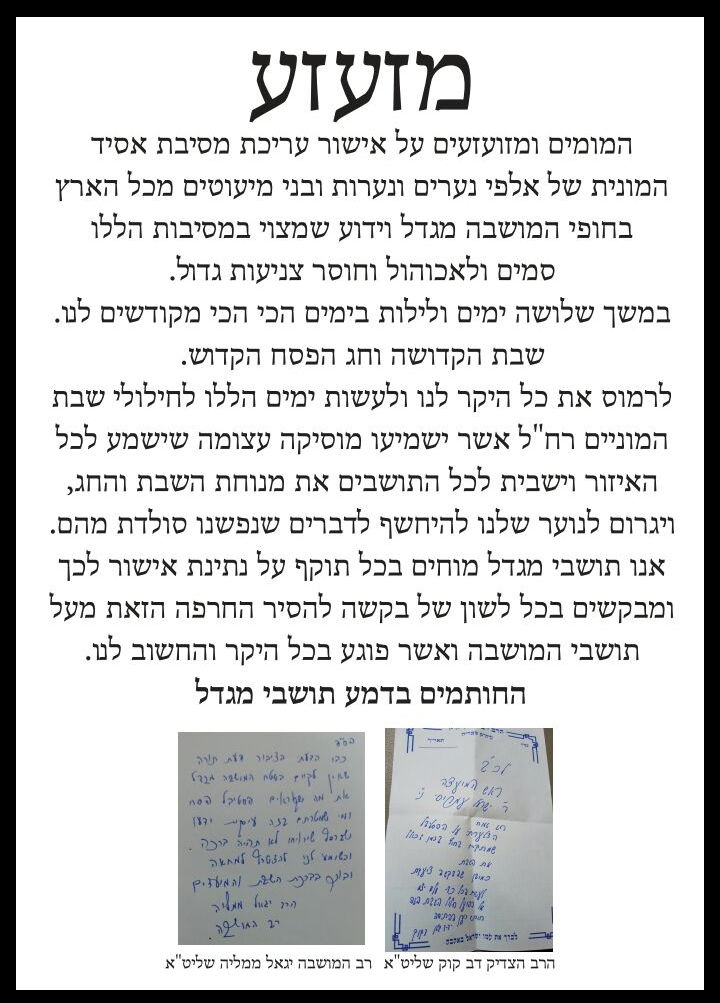 מזעזע
המומים ומזועזעים על אישור עריכת מסיבת אסיד
המונית של אלפי נערים ונערות ובני מיעוטים מכל הארץ
בחופי המושבה מגדל וידוע שמצוי במסיבות הללו
סמים ולאכוהול וחוסר צניעות גדול.
במשך שלושה ימים ולילות בימים הכי הכי מקודשים לנו.
שבת הקדושה וחג הפסח הקדוש.
לרמוס את כל היקר לנו ולעשות ימים הללו לחילולי שבת
המוניים רח"ל אשר ישמיעו מוסיקה עצומה שישמע לכל
האיזור וישבית לכל התושבים את מנוחת השבת והחג,
ויגרום לנוער שלנו להיחשף לדברים שנפשנו סולדת מהם.
אנו תושבי מגדל מוחים בכל תוקף על נתינת אישור לכך
ומבקשים בכל לשון של בקשה להסיר החרפה הזאת מעל
תושבי המושבה ואשר פוגע בכל היקר והחשוב לנו.
החותמים בדמע תושבי מגדל
בס"ד
דעת תורה
שאין לקיים בשטח המושבה מגדל
את מה שקוראים פסטיבל פסח
לא תהיה ברכה.
בברכת השבת והמועדים
הרב יגאל ממליה
רב המושבה
תאריך
לכ'
ראש המועצה
הרב הצדיק דב קוק שליט"א
רב המושבה יגאל ממליה שליט"א